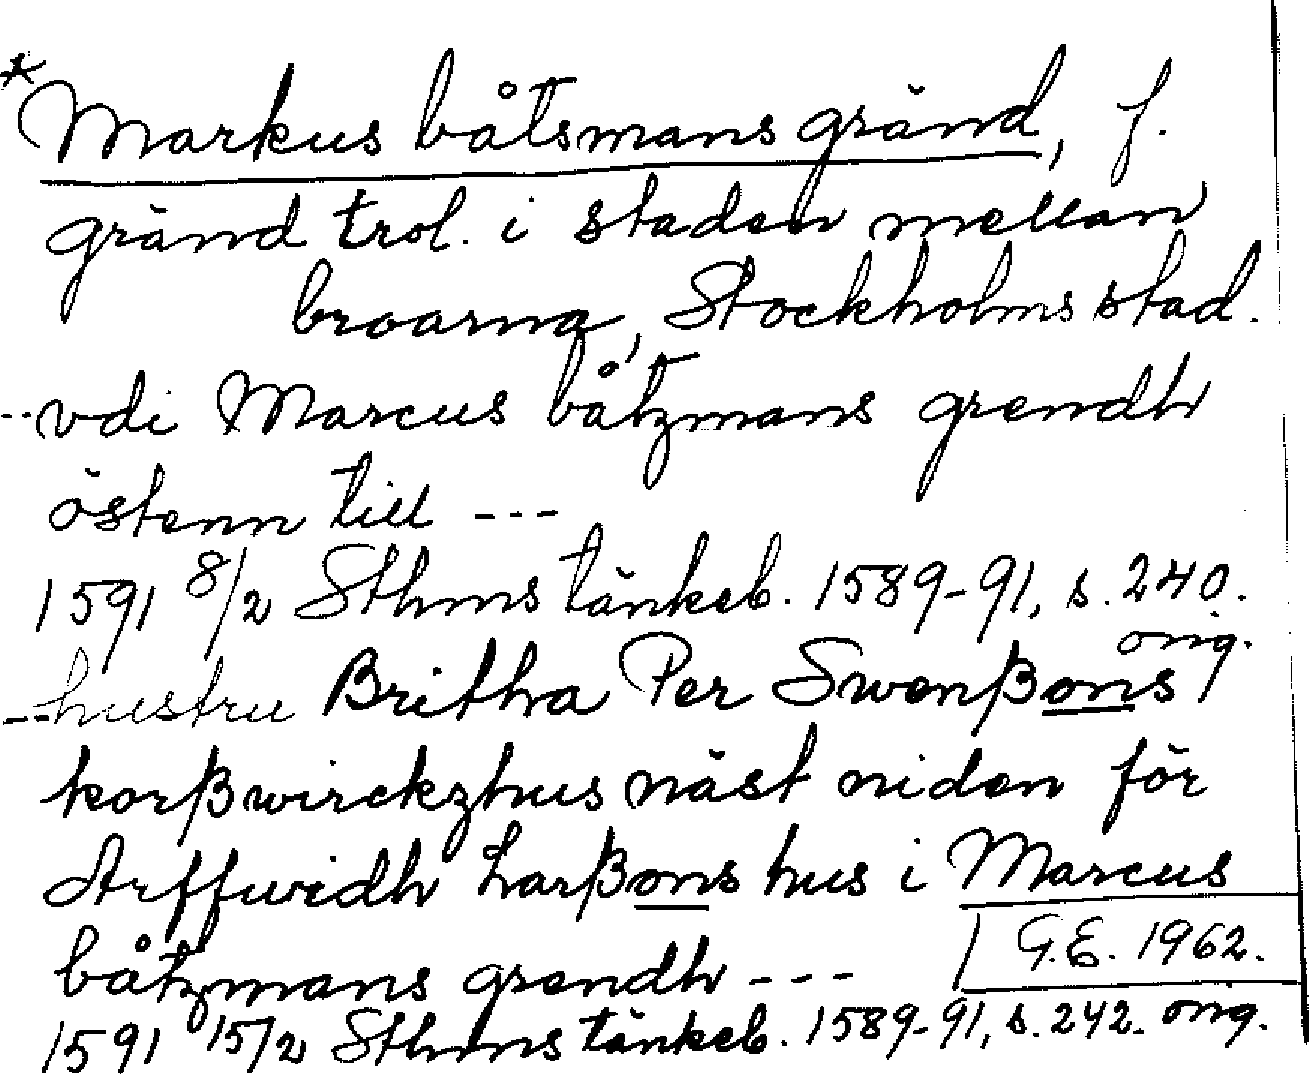 *Markus båtsmans gränd, f.
gränd trol. i staden mellan
broarna, Stockholms stad.
--vdi Marcus båtzmans grendh
östenn till ---
1591 8/2 Sthms tänkeb. 1589-91, s. 240.
orig.
--hustru Britha Per Swenßons
korßwirckzhus näst niden för
Arffwidh Larßons hus i Marcus
båtzmans grendh ---
G.E. 1962.
1591 15/2 Sthms tänkeb. 1589-91, s. 242. orig.